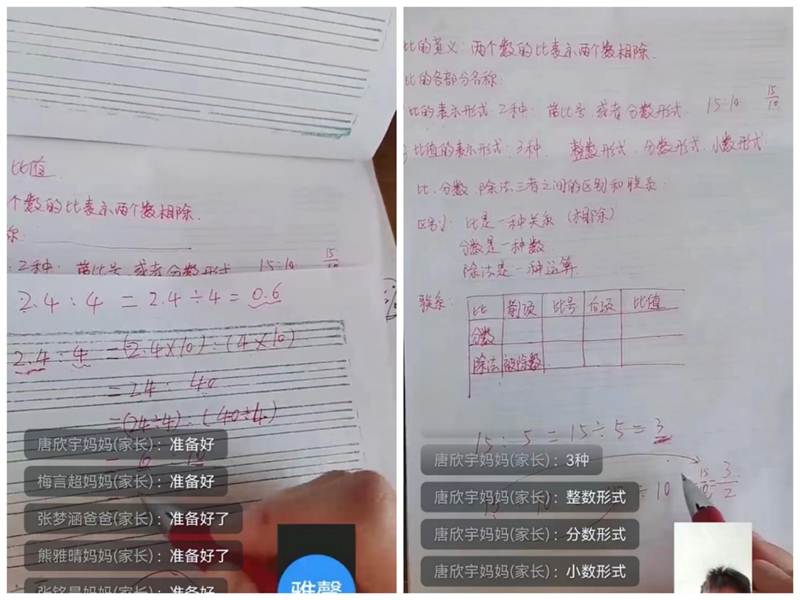 比值
个数的比表示两个数相除.
2种: 带比号 或者分数形式 15:10 15/10
2.4 : 4 = 2.4÷4 = 0.6
2.4 : 4 = (2.4×10) : (4×10)
= 24 : 40
= (24÷4) : (40÷4)
唐欣宇妈妈(家长)：准备好
梅言超妈妈(家长)：准备好
张梦涵爸爸(家长)：准备好了
熊雅晴妈妈(家长)：准备好了
张铭昊妈妈(家长)：准备好
雅馨
比的意义: 两个数的比表示两个数相除.
比的各部分名称:
比的表示形式 2种: 带比号 或者分数形式. 15:10 15/10
比值的表示形式: 3种. 整数形式. 分数形式. 小数形式.
比. 分数. 除法三者之间的区别和联系:
区别: 比是一种关系 (相除)
分数是一种数
除法是一种运算
联系:
比 前项 比号 后项 比值
分数
除法 被除数
15 : 5 = 15÷5 = 3
÷ 10 3/2
唐欣宇妈妈(家长)：3种
唐欣宇妈妈(家长)：整数形式
唐欣宇妈妈(家长)：分数形式
唐欣宇妈妈(家长)：小数形式